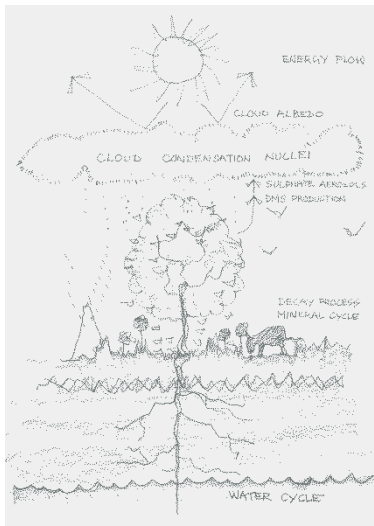 ENERGY FLOW
CLOUD ALBEDO
CLOUD CONDENSATION NUCLEI
SULPHATE AEROZOLS
DMS PRODUCTION
DECAY PROCESS
MINERAL CYCLE
WATER CYCLE